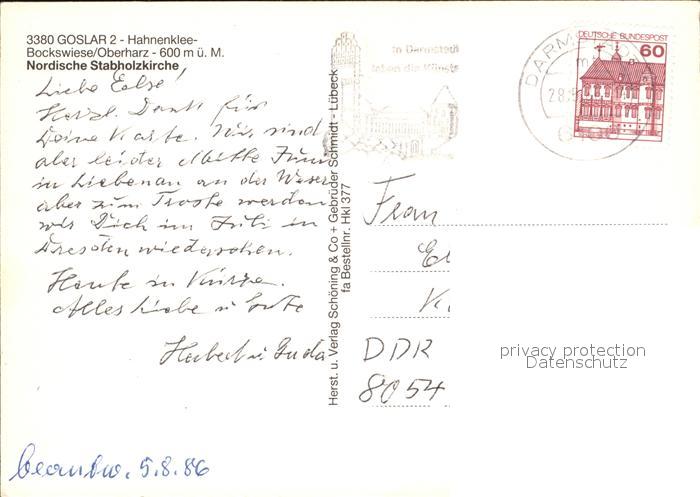 3380 GOSLAR 2 - Hahnenklee-
Bockswiese/Oberharz - 600 m ü. M.
Nordische Stabholzkirche
Liebe Else!
Herzl. Dank für
Deine Karte. Wir sind
aber leider Mitte Juni
in Liebenau an der Weser
aber zum Troste werden
wir Dich im Juli in
Dresden wiedersehen.
Heute in Kürze.
Alles Liebe u Gute
Herbert u
beantw. 5.8.86
Herst. u. Verlag Schöning & Co + Gebrüder Schmidt - Lübeck
fa Bestellnr. Hkl 377
in Darmstadt
leben die Künste
DARM
28.5
DEUTSCHE BUNDESPOST
60
Frau
El
K
DDR
8054
privacy protection
Datenschutz